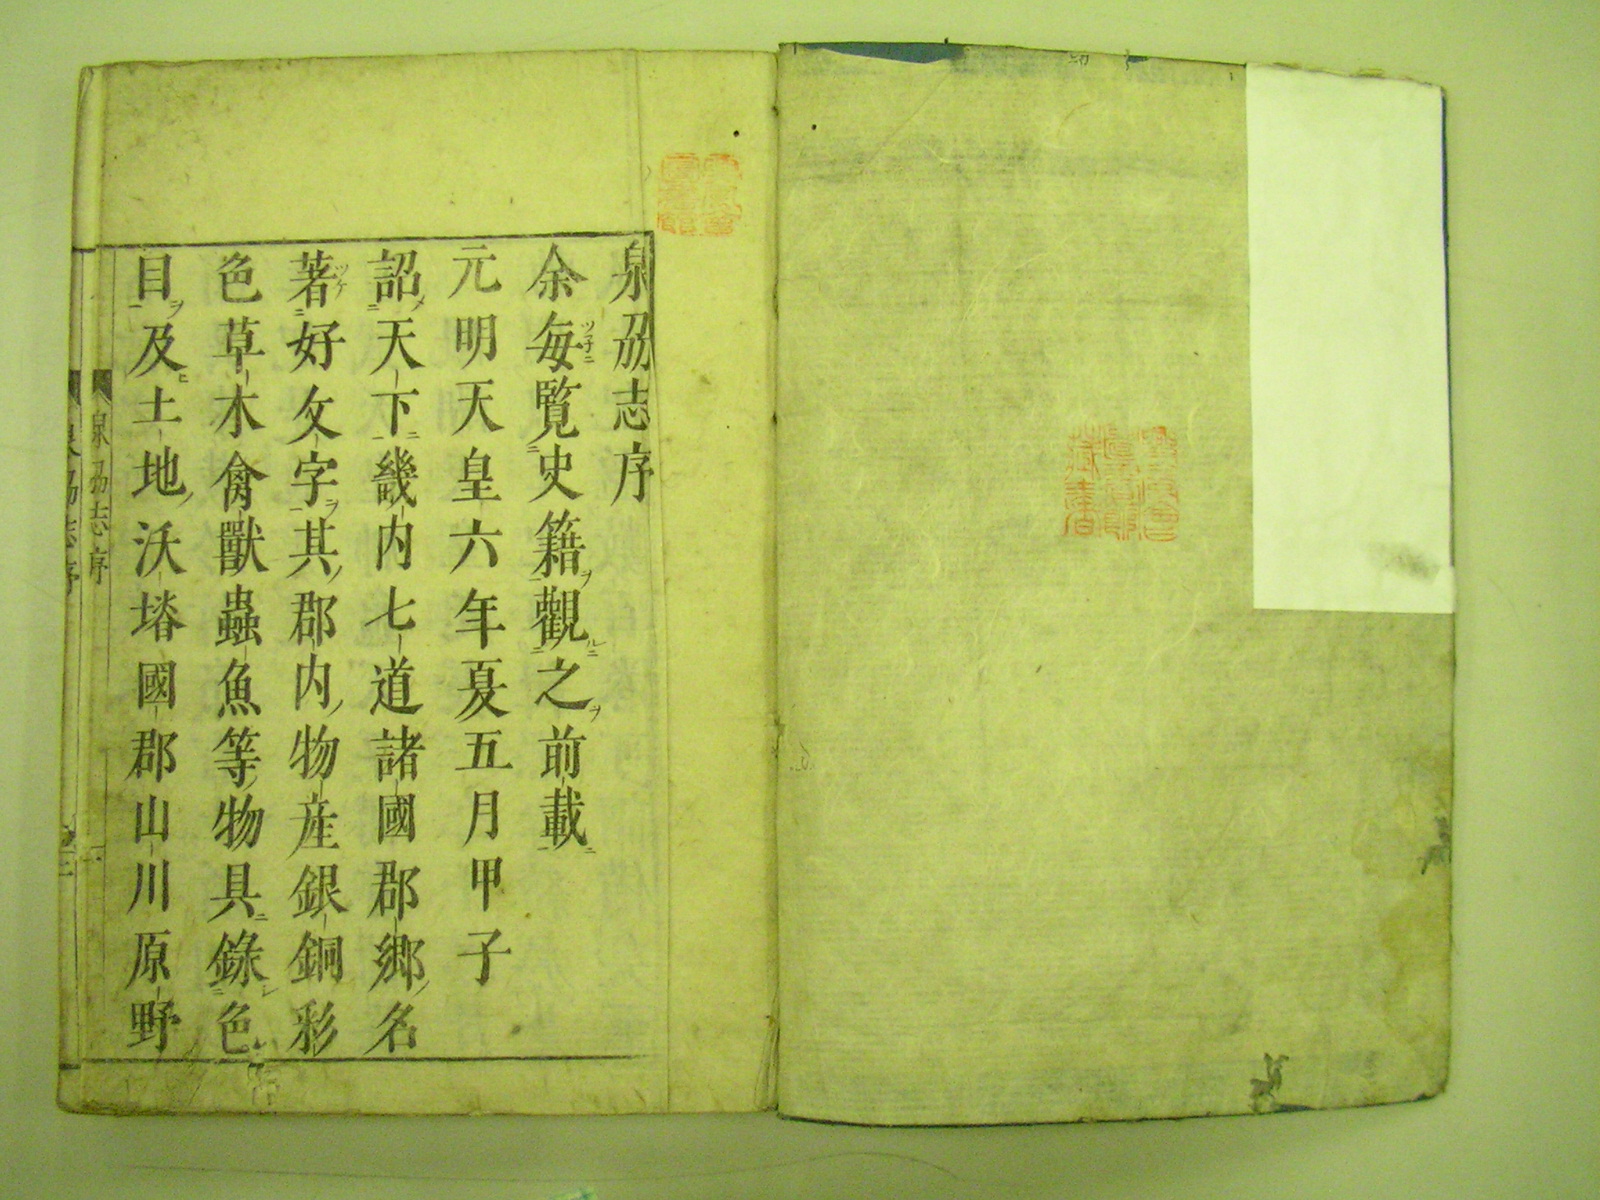 泉刕志序
余每覧史籍觀之前載
元明天皇六年夏五月甲子
詔天下畿内七道諸國郡郷名
著好文字其郡内物産銀銅彩
色草木禽獸蟲魚等物具錄色
目及土地沃塉國郡山川原野
泉刕志序